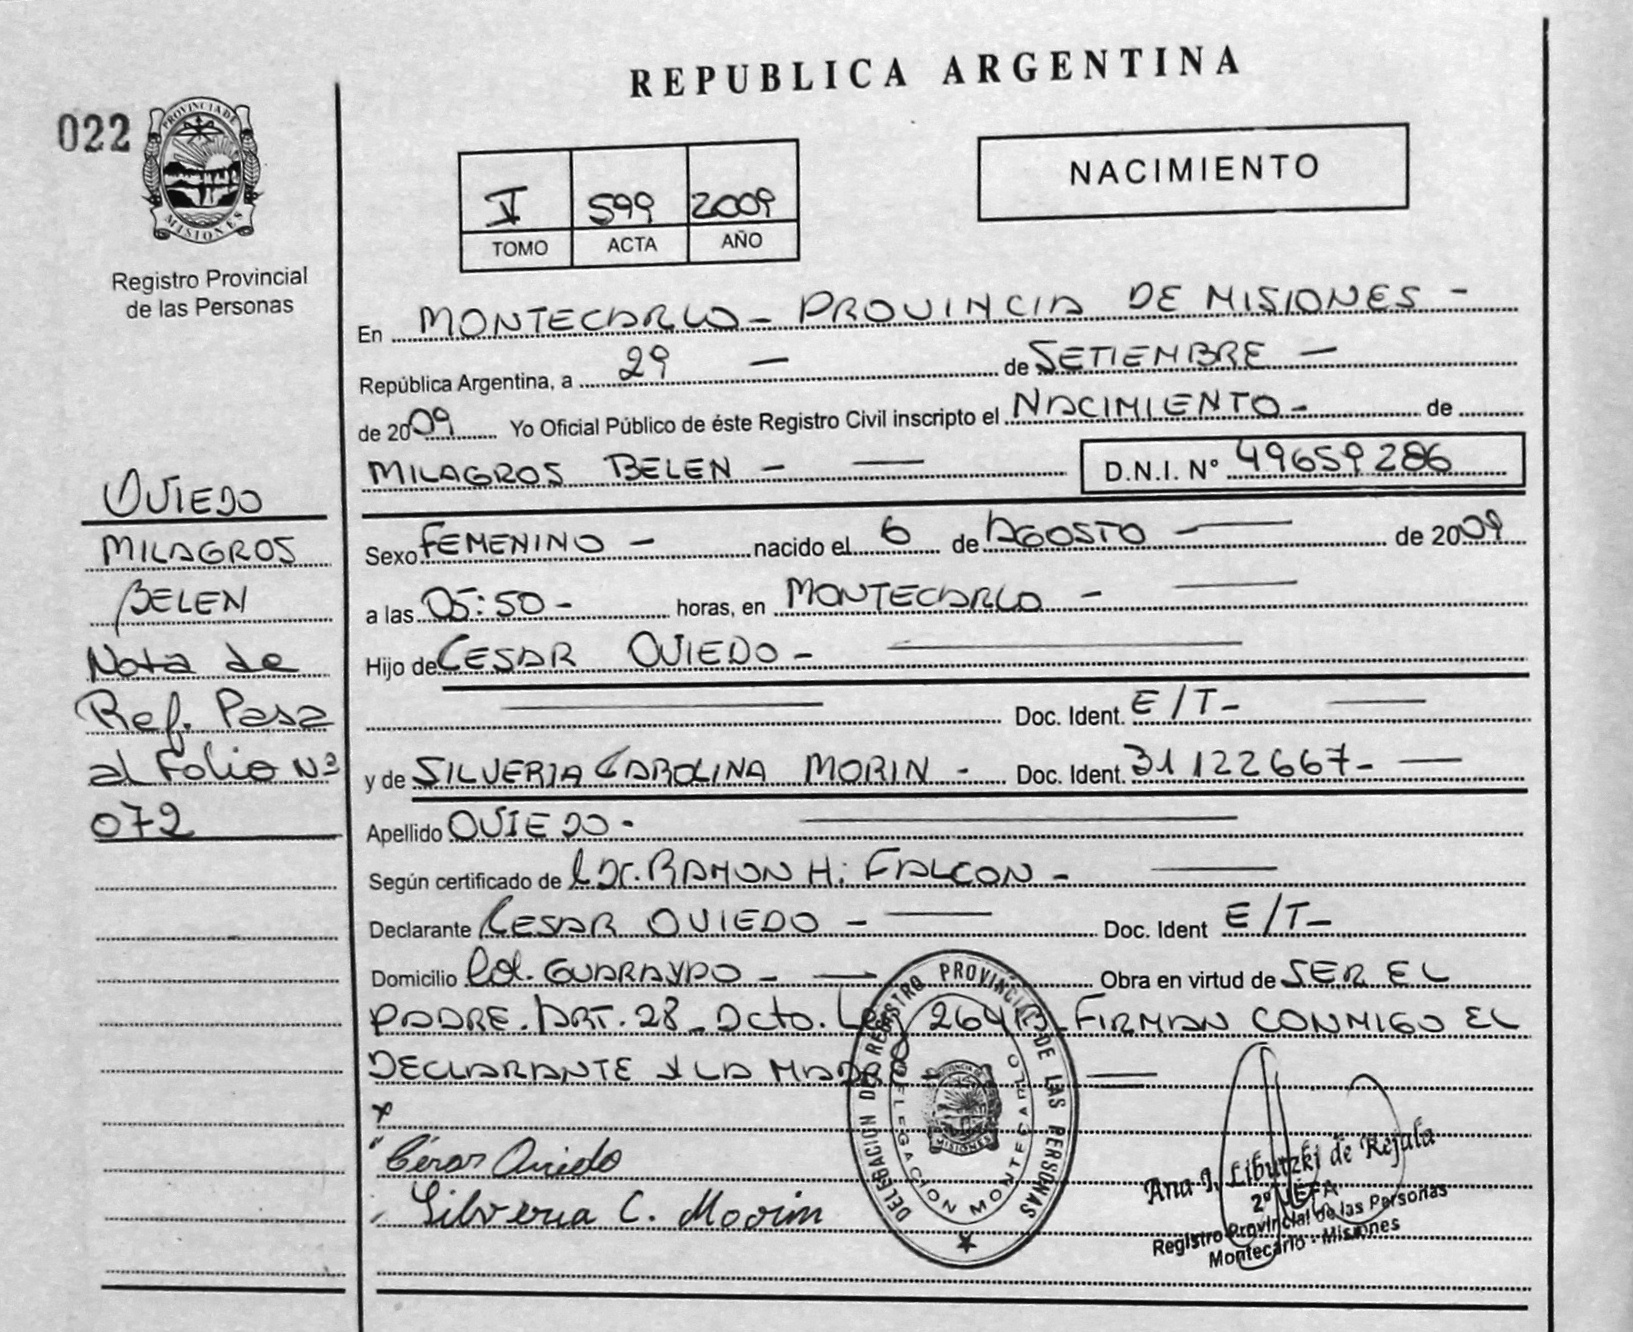 REPUBLICA ARGENTINA
022
PROVINCIA DE
MISIONES
Registro Provincial
de las Personas
V 599 2009
TOMO ACTA AÑO
NACIMIENTO
En MONTECARLO - PROVINCIA DE MISIONES -
República Argentina, a 29 — de SETIEMBRE —
de 2009 Yo Oficial Público de éste Registro Civil inscripto el NACIMIENTO - de
MILAGROS BELEN - — D.N.I. N° 49659286
Sexo FEMENINO - nacido el 6 de AGOSTO - — de 2009
a las 05:50 - horas, en MONTECARLO - —
Hijo de CESAR OVIEDO - —
— Doc. Ident. E/T - —
y de SILVERIA CAROLINA MORIN - Doc. Ident. 31122667 - —
Apellido OVIEDO - —
Según certificado de Dr. RAMON H. FALCON - —
Declarante CESAR OVIEDO - — Doc. Ident E/T -
Domicilio Col. GUARAYPO - — Obra en virtud de SER EL
PADRE. ART. 28 - Dcto. FIRMAN CONMIGO EL
DECLARANTE Y LA MADRE —
César Oviedo
Silveria C. Morin
OVIEDO
MILAGROS
BELEN
Nota de
Ref. Pasa
al Folio Nº
072
DELEGACION DEL REGISTRO PROVINCIAL DE LAS PERSONAS
DELEGACION MONTECARLO
MISIONES
Ana I. Libutzki de Rejala
2º JEFA
Registro Provincial de las Personas
Montecarlo - Misiones